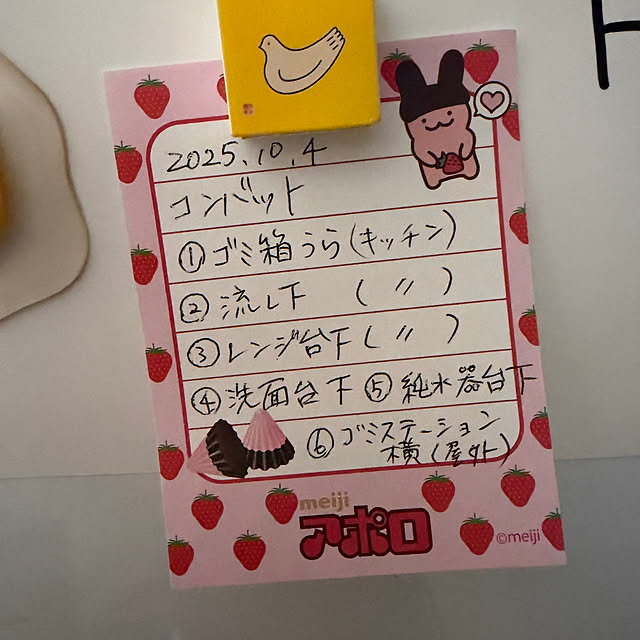 2025.10.4
コンバット
①ゴミ箱うら(キッチン)
②流し下 (〃)
③レンジ台下(〃)
④洗面台下 ⑤純水器台下
⑥ゴミステーション
横(屋外)
meiji
アポロ
©meiji